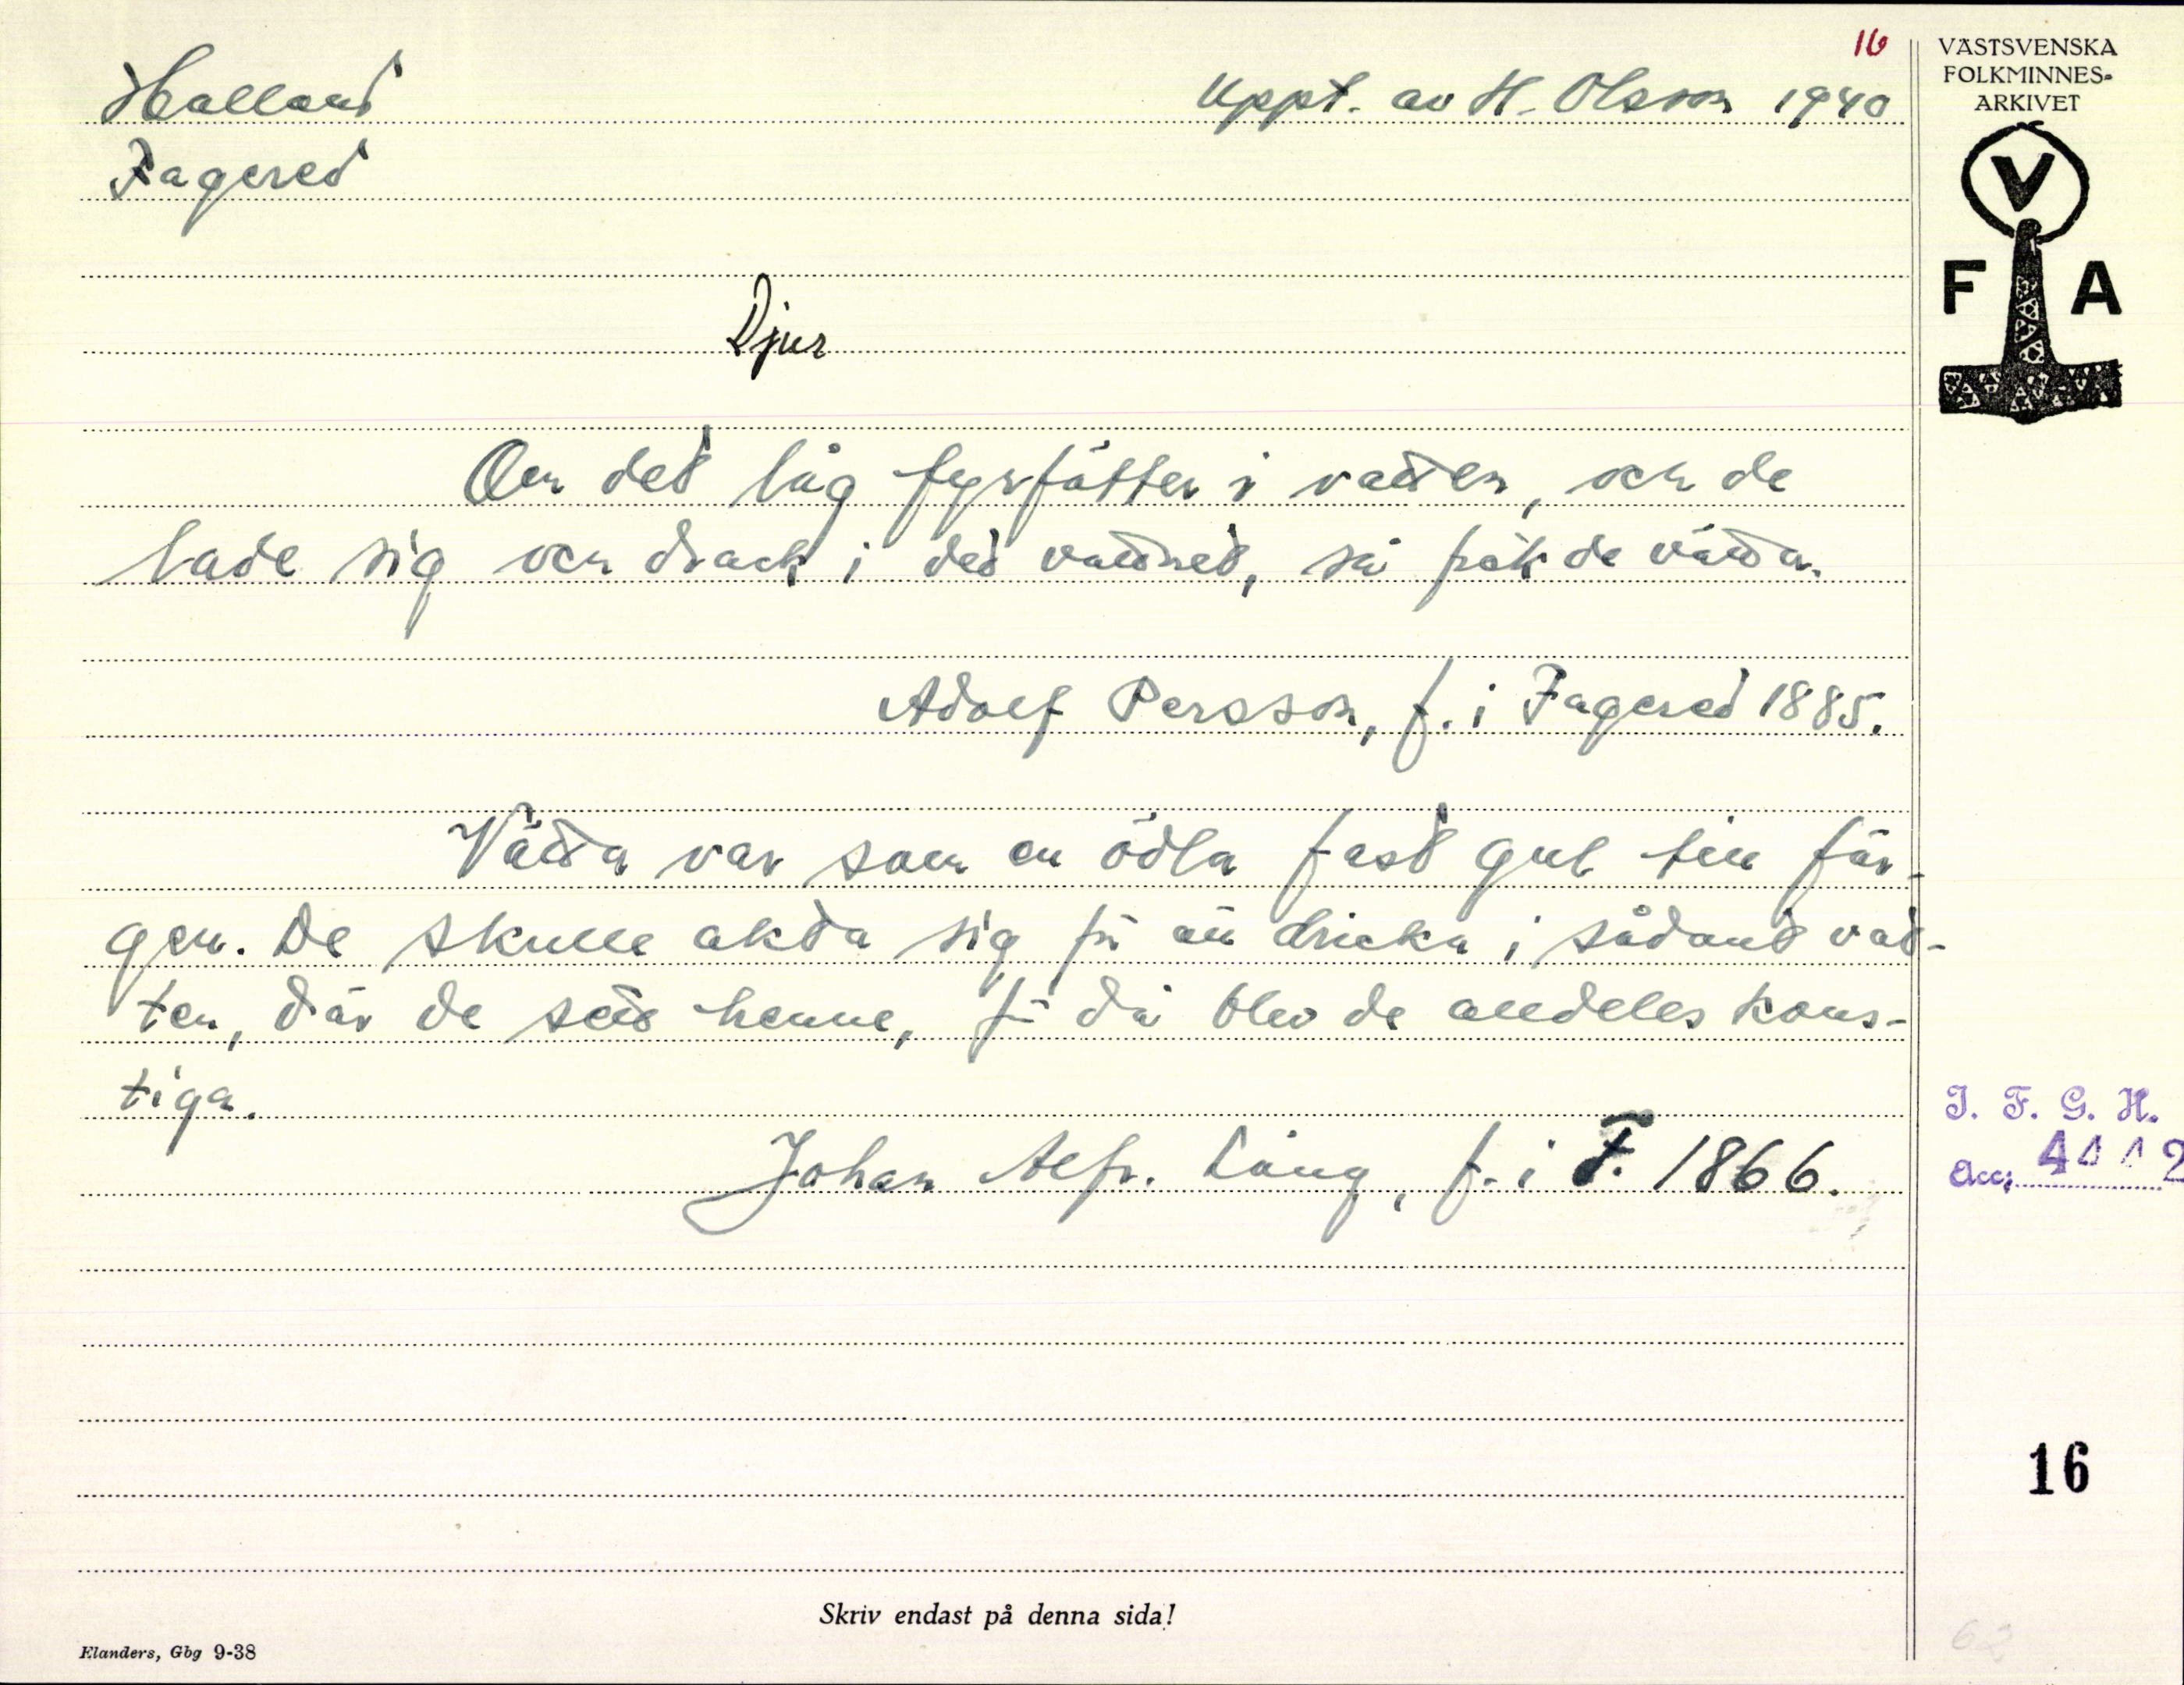 16
Halland
Uppt. av H. Olsson 1940
Fagered
VÄSTSVENSKA
FOLKMINNES-
ARKIVET
V
F A
Djur
Om det låg fyrfötter i vatten, och de
lade sig och drack i det vattnet, så fick de vätta.
Adolf Persson, f. i Fagered 1885.
Vätta var som en ödla fast gul till fär-
gen. De skulle akta sig för att dricka i sådant vat-
ten, där de sett henne, för då blev de alldeles kons-
tiga.
Johan Alfr. Lång, f. i F. 1866.
I. F. G. H.
Acc:
16
Skriv endast på denna sida!
Elanders, Gbg 9-38
62